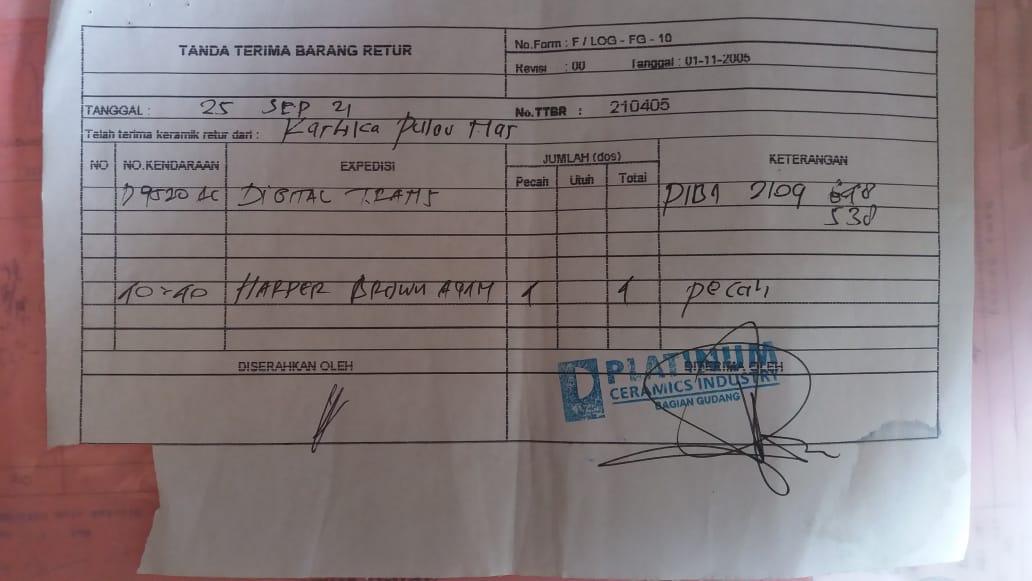 TANDA TERIMA BARANG RETUR
No.Form : F / LOG - FG - 10
Revisi : 00 Tanggal : 01-11-2005
TANGGAL : 25 SEP 21 No.TTBR : 210405
Telah terima keramik retur dari : Kartika Pulou Mas
NO NO.KENDARAAN EXPEDISI JUMLAH (dos) KETERANGAN
Pecah Utuh Total
DIGITAL TRANS 2109 618
538
40×40 HARPER BROWN 1 1 pecah
DISERAHKAN OLEH DITERIMA OLEH
PLATINUM
CERAMICS INDUSTRY
BAGIAN GUDANG